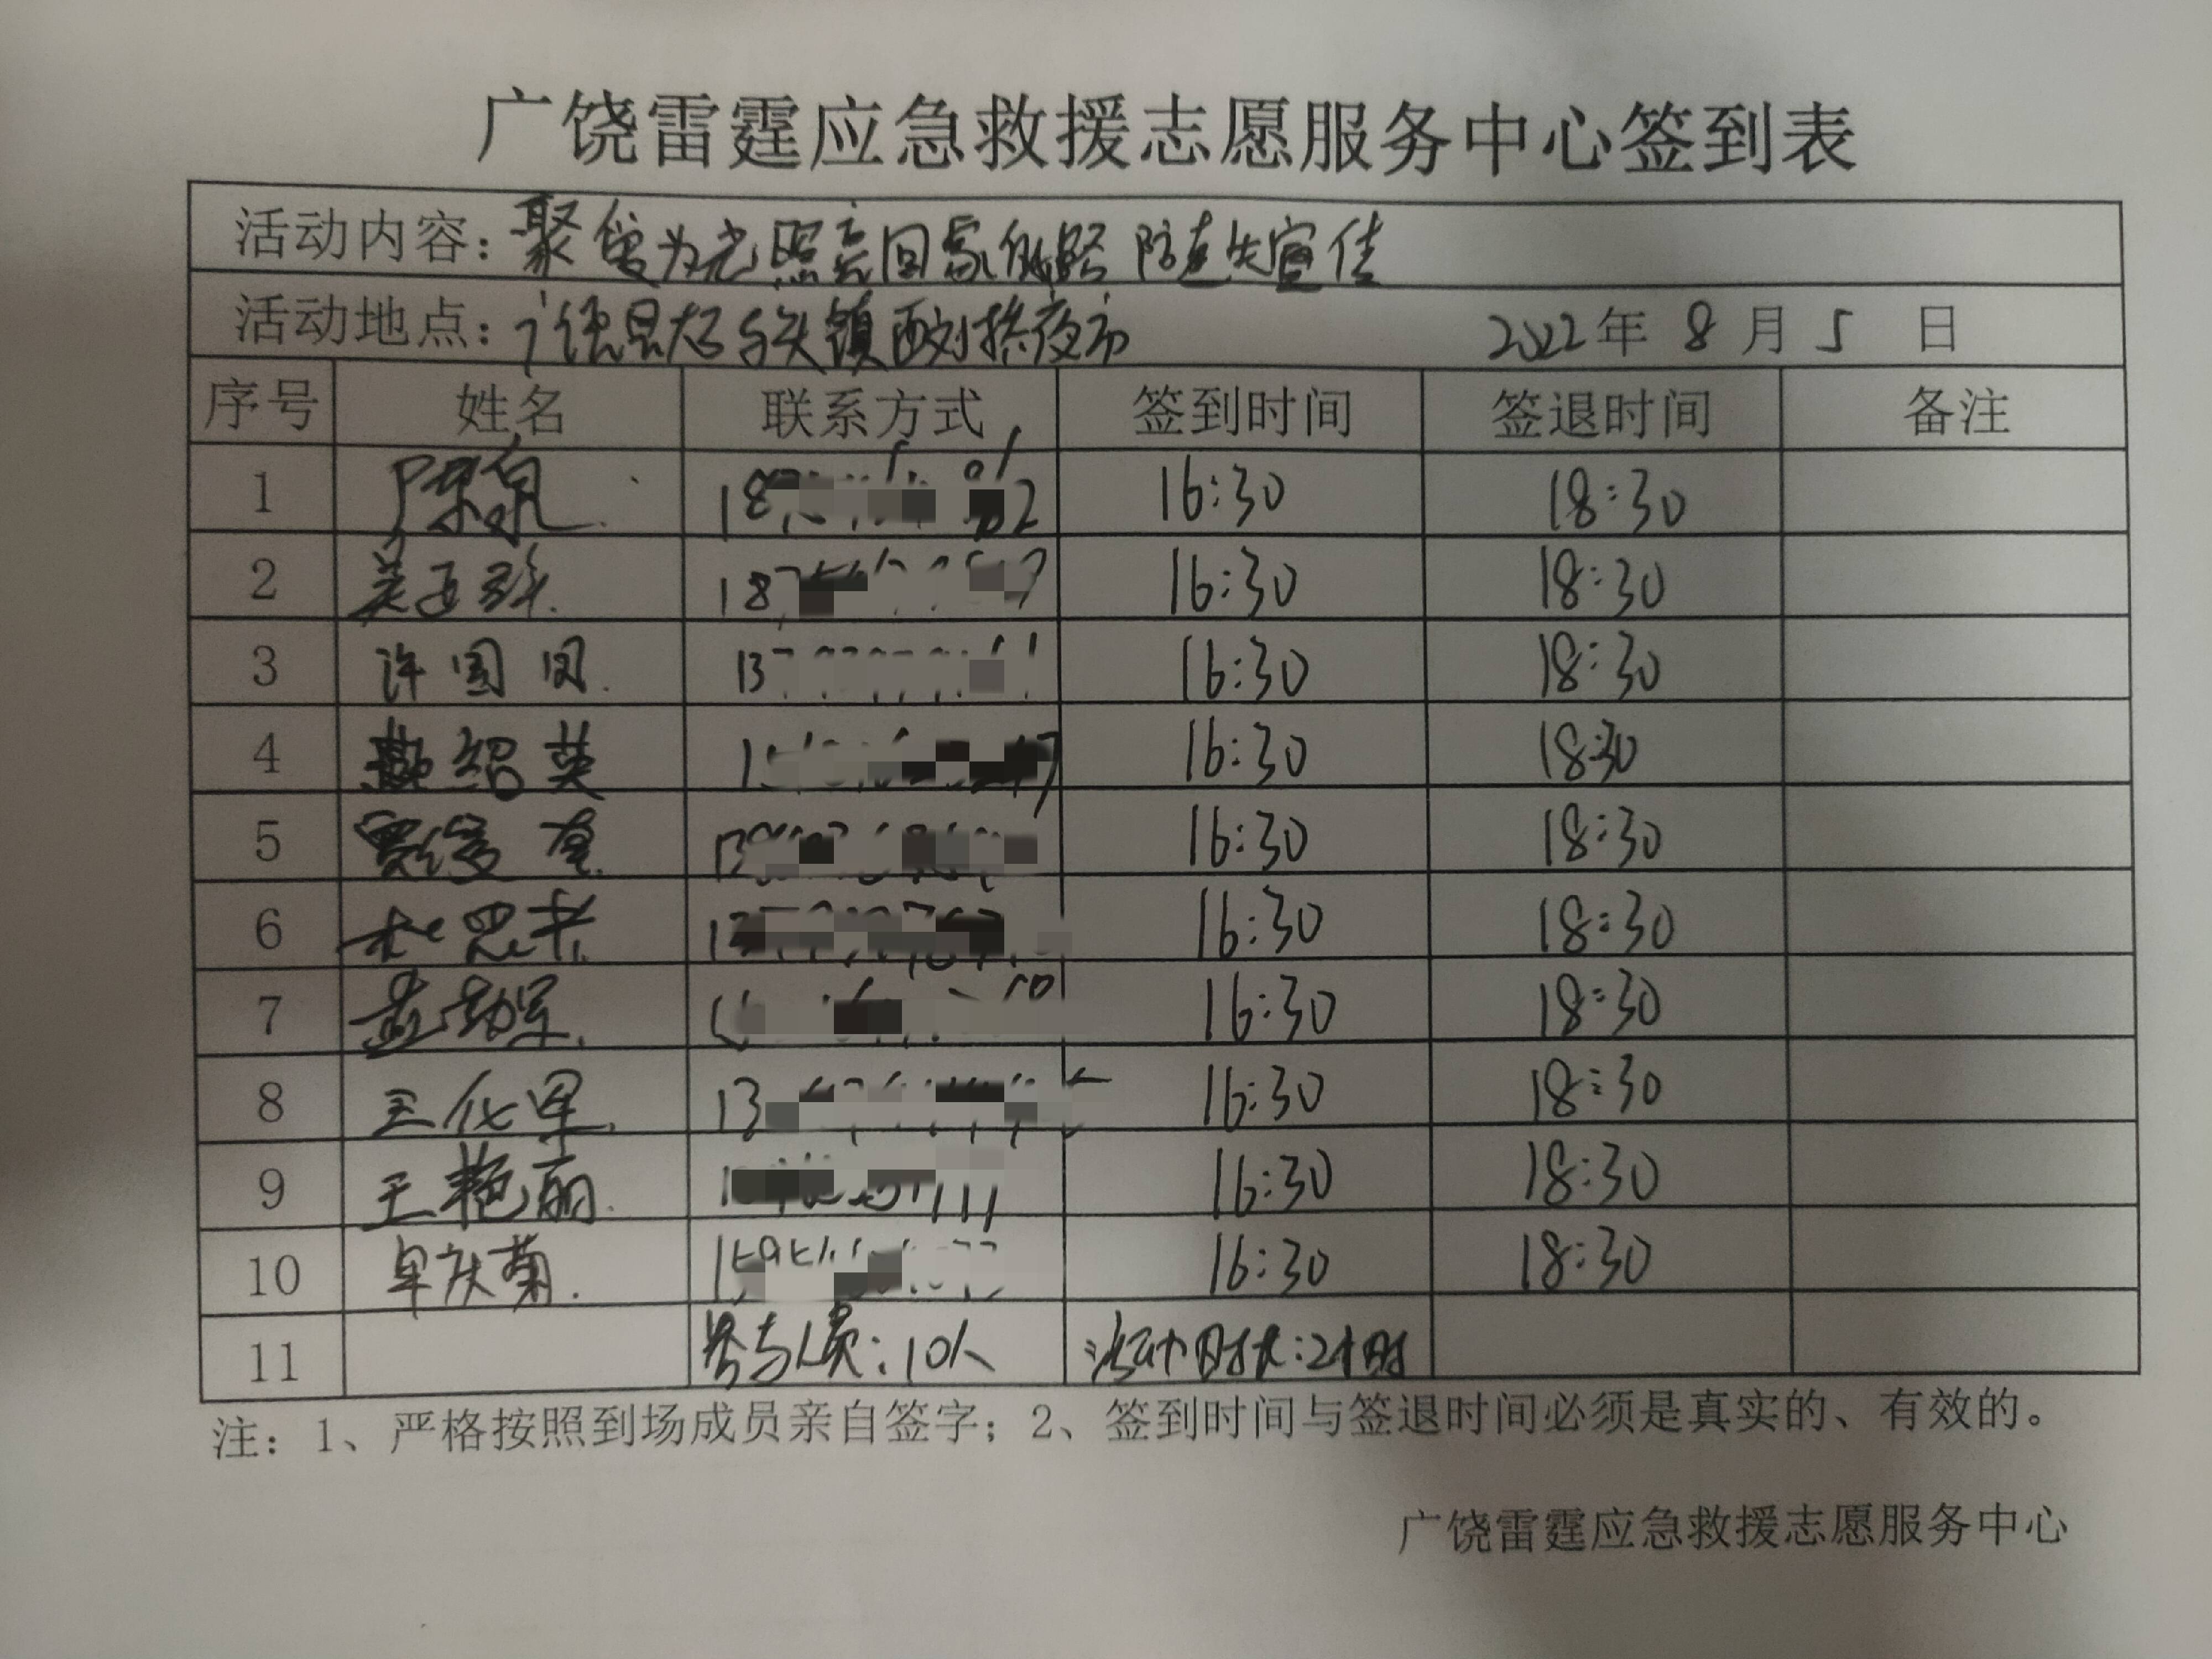 广饶雷霆应急救援志愿服务中心签到表
活动内容：聚萤为光照亮回家的路 防走失宣传
活动地点：广饶县大码头镇西刘桥夜市 2022年 8 月 5 日
序号 姓名 联系方式 签到时间 签退时间 备注
1 陈泉 16:30 18:30
2 16:30 18:30
3 许国 16:30 18:30
4 燕绍英 16:30 18:30
5 16:30 18:30
6 杜思 16:30 18:30
7 16:30 18:30
8 王化军 16:30 18:30
9 王艳丽 16:30 18:30
10 单庆菊 16:30 18:30
11 参与人员：10人 活动时长：2小时
注：1、严格按照到场成员亲自签字；2、签到时间与签退时间必须是真实的、有效的。
广饶雷霆应急救援志愿服务中心